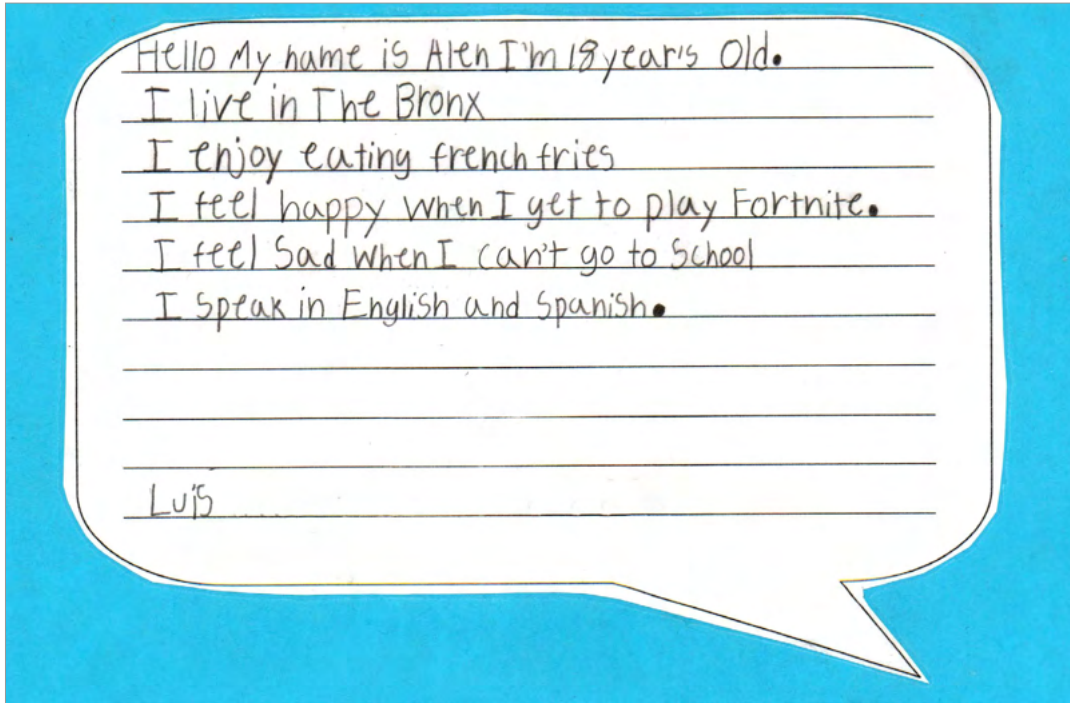 Hello My name is Alen I'm 18 year's Old.
I live in The Bronx
I enjoy eating french fries
I feel happy when I get to play Fortnite.
I feel Sad when I can't go to School
I Speak in English and Spanish.
Luis